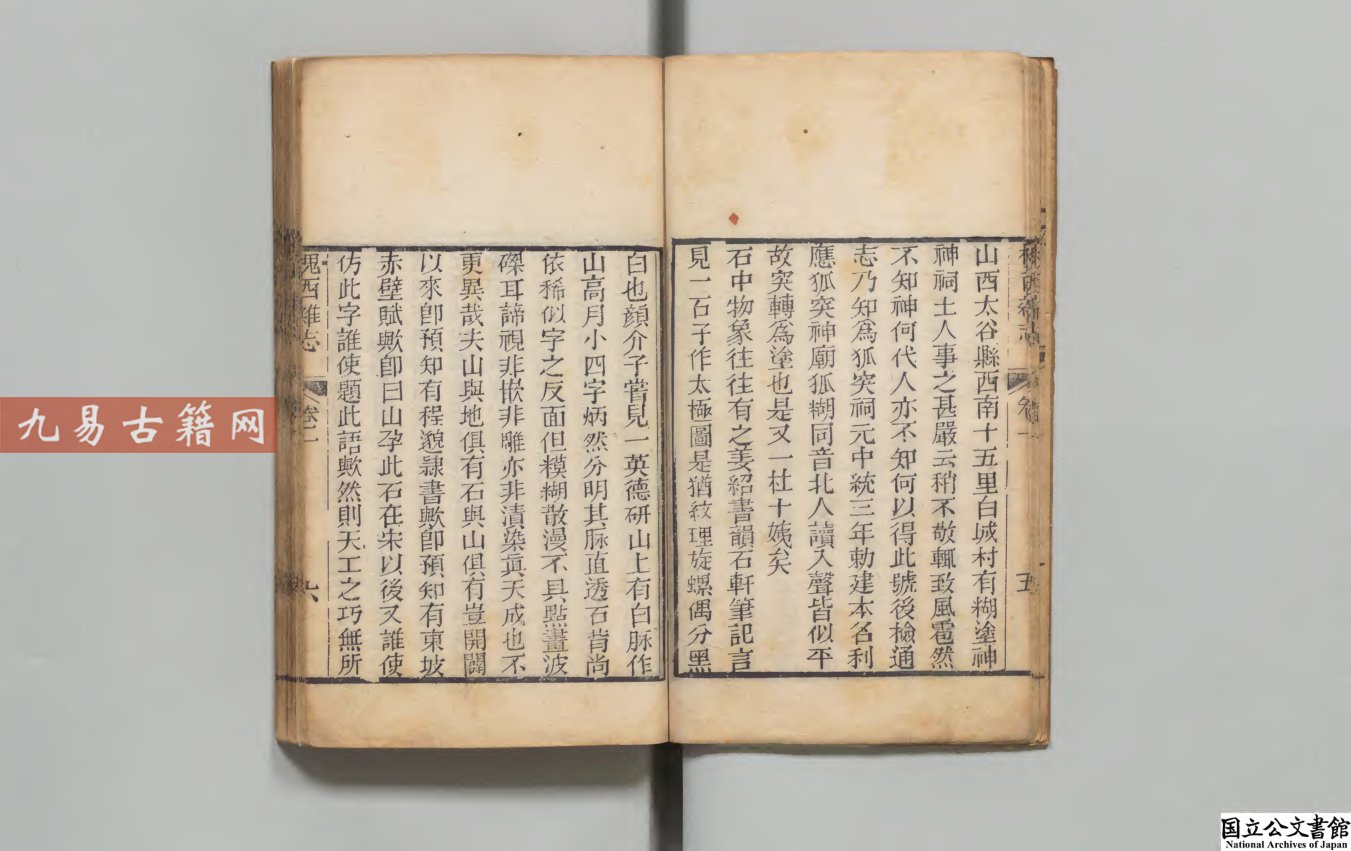 槐西雜志
卷二
五
山西太谷縣西南十五里白城村有糊塗神
神祠土人事之甚嚴云稍不敬輒致風雹然
不知神何代人亦不知何以得此號後檢通
志乃知爲狐突祠元中統三年勅建本名利
應狐突神廟狐糊同音北人讀入聲皆似平
故突轉爲塗也是又一杜十姨矣
石中物象往往有之姜紹書韻石軒筆記言
見一石子作太極圖是猶紋理旋螺偶分黑
白也顏介子嘗見一英德研山上有白脉作
山高月小四字炳然分明其脉直透石背尚
依稀似字之反面但糢糊散漫不具點畫波
磔耳諦視非嵌非雕亦非漬染眞天成也不
更異哉夫山與地俱有石與山俱有豈開闢
以來卽預知有程邈隸書歟卽預知有東坡
赤壁賦歟卽曰山孕此石在宋以後又誰使
仿此字誰使題此語歟然則天工之巧無所
槐西雜志
卷二
六
九易古籍网
国立公文書館
National Archives of Japan